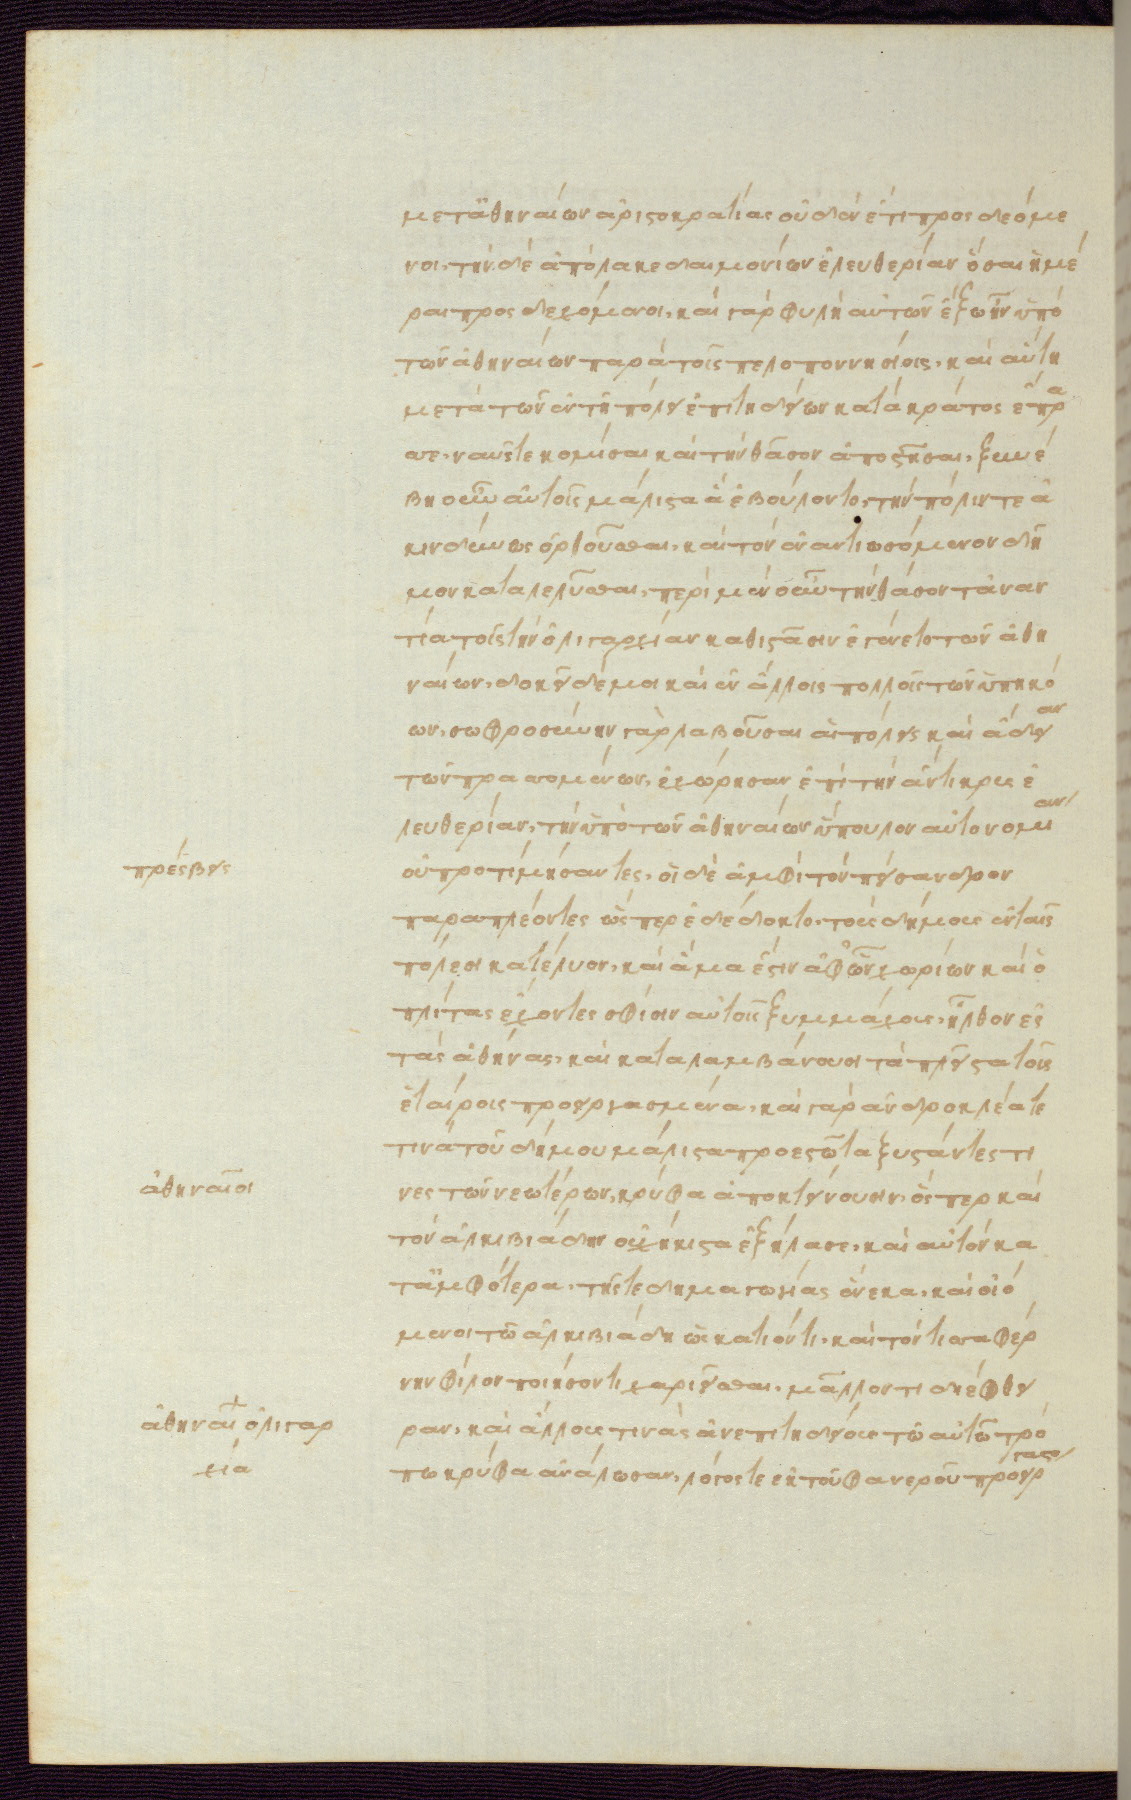 μετ᾽ ἀθηναίων ἀριστοκρατίας οὐδὲν ἔτι προσδεόμε
νοι, τὴν δὲ ἀπὸ λακεδαιμονίων ἐλευθερίαν ὁσαι ἡμέ
ραι προσδεχόμενοι, καὶ γὰρ φυγὴ αὐτῶν ἔξω ἦν ὑπὸ
τῶν ἀθηναίων παρὰ τοῖς πελοποννησίοις, καὶ αὕτη
μετὰ τῶν ἐν τῇ πόλει ἐπιτηδείων κατὰ κράτος ἔπρα
σσε, ναῦς τε κομίσαι καὶ τὴν θάσον ἀποστῆσαι, ξυνέ
βη οὖν αὐτοῖς μάλιστα ἃ ἐβούλοντο, τὴν πόλιν τε ἀ
κινδύνως ὀρθοῦσθαι, καὶ τὸν ἐναντιωσόμενον δῆ
μον καταλελῦσθαι, περὶ μὲν οὖν τὴν θάσον τἀναν
τία τοῖς τὴν ὀλιγαρχίαν καθιστᾶσιν ἐγένετο τῶν ἀθη
ναίων, δοκεῖ δέ μοι καὶ ἐν ἄλλοις πολλοῖς τῶν ὑπηκό
ων, σωφροσύνην γὰρ λαβοῦσαι αἱ πόλεις καὶ ἄδειαν
τῶν πρασσομένων, ἐχώρησαν ἐπὶ τὴν ἄντικρυς ἐ
λευθερίαν, τὴν ὑπὸ τῶν ἀθηναίων ὕπουλον αὐτονομίαν
πρέσβεις
οὐ προτιμήσαντες, οἱ δὲ ἀμφὶ τὸν πείσανδρον
παραπλέοντες ὥσπερ ἐδέδοκτο, τοὺς δήμους ἐν ταῖς
πόλεσι κατέλυον, καὶ ἅμα ἔστιν ἀφ᾽ ὧν χωρίων καὶ ὁ
πλίτας ἔχοντες σφίσιν αὐτοῖς ξυμμάχους, ἦλθον ἐς
τὰς ἀθήνας, καὶ καταλαμβάνουσι τὰ πλεῖστα τοῖς
ἑταίροις προειργασμένα, καὶ γὰρ ἀνδροκλέα τε
τινὰ τοῦ δήμου μάλιστα προεστῶτα ξυστάντες τι
ἀθηναῖοι
νες τῶν νεωτέρων, κρύφα ἀποκτείνουσιν, ὅσπερ καὶ
τὸν ἀλκιβιάδην οὐχ ἥκιστα ἐξήλασε, καὶ αὐτὸν κα
τ᾽ ἀμφότερα, τῆς τε δημαγωγίας ἕνεκα, καὶ οἰό
μενοι τῷ ἀλκιβιάδῃ ὡς κατιόντι, καὶ τὸν τισσαφέρ
νην φίλον ποιήσοντι χαριεῖσθαι, μᾶλλόν τι διέφθει
ἀθηναί ὀλιγαρ
χία
ραν, καὶ ἄλλους τινὰς ἀνεπιτηδείους τῷ αὐτῷ τρό
πῳ κρύφα ἀνάλωσαν, λόγος τε ἐκ τοῦ φανεροῦ προείργασ